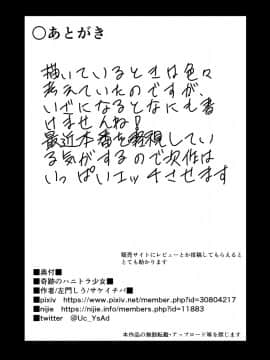 ○あとがき
描いているときは色々
考えていたのですが、
いざになるとなにも書
けませんね！
最近本番を軽視してい
る気がするので次作は
いっぱいエッチさせます
販売サイトにレビューとか投稿してもらえると
とても助かります
■奥付■
■奇跡のハニトラ少女■
■作者/左門しう/サケイチバ■
■pixiv　https://www.pixiv.net/member.php?id=30804217
■nijie　https://nijie.info/members.php?id=11883
■twitter　@Uc_YsAd
本作品の無断転載・アップロード等を禁じます